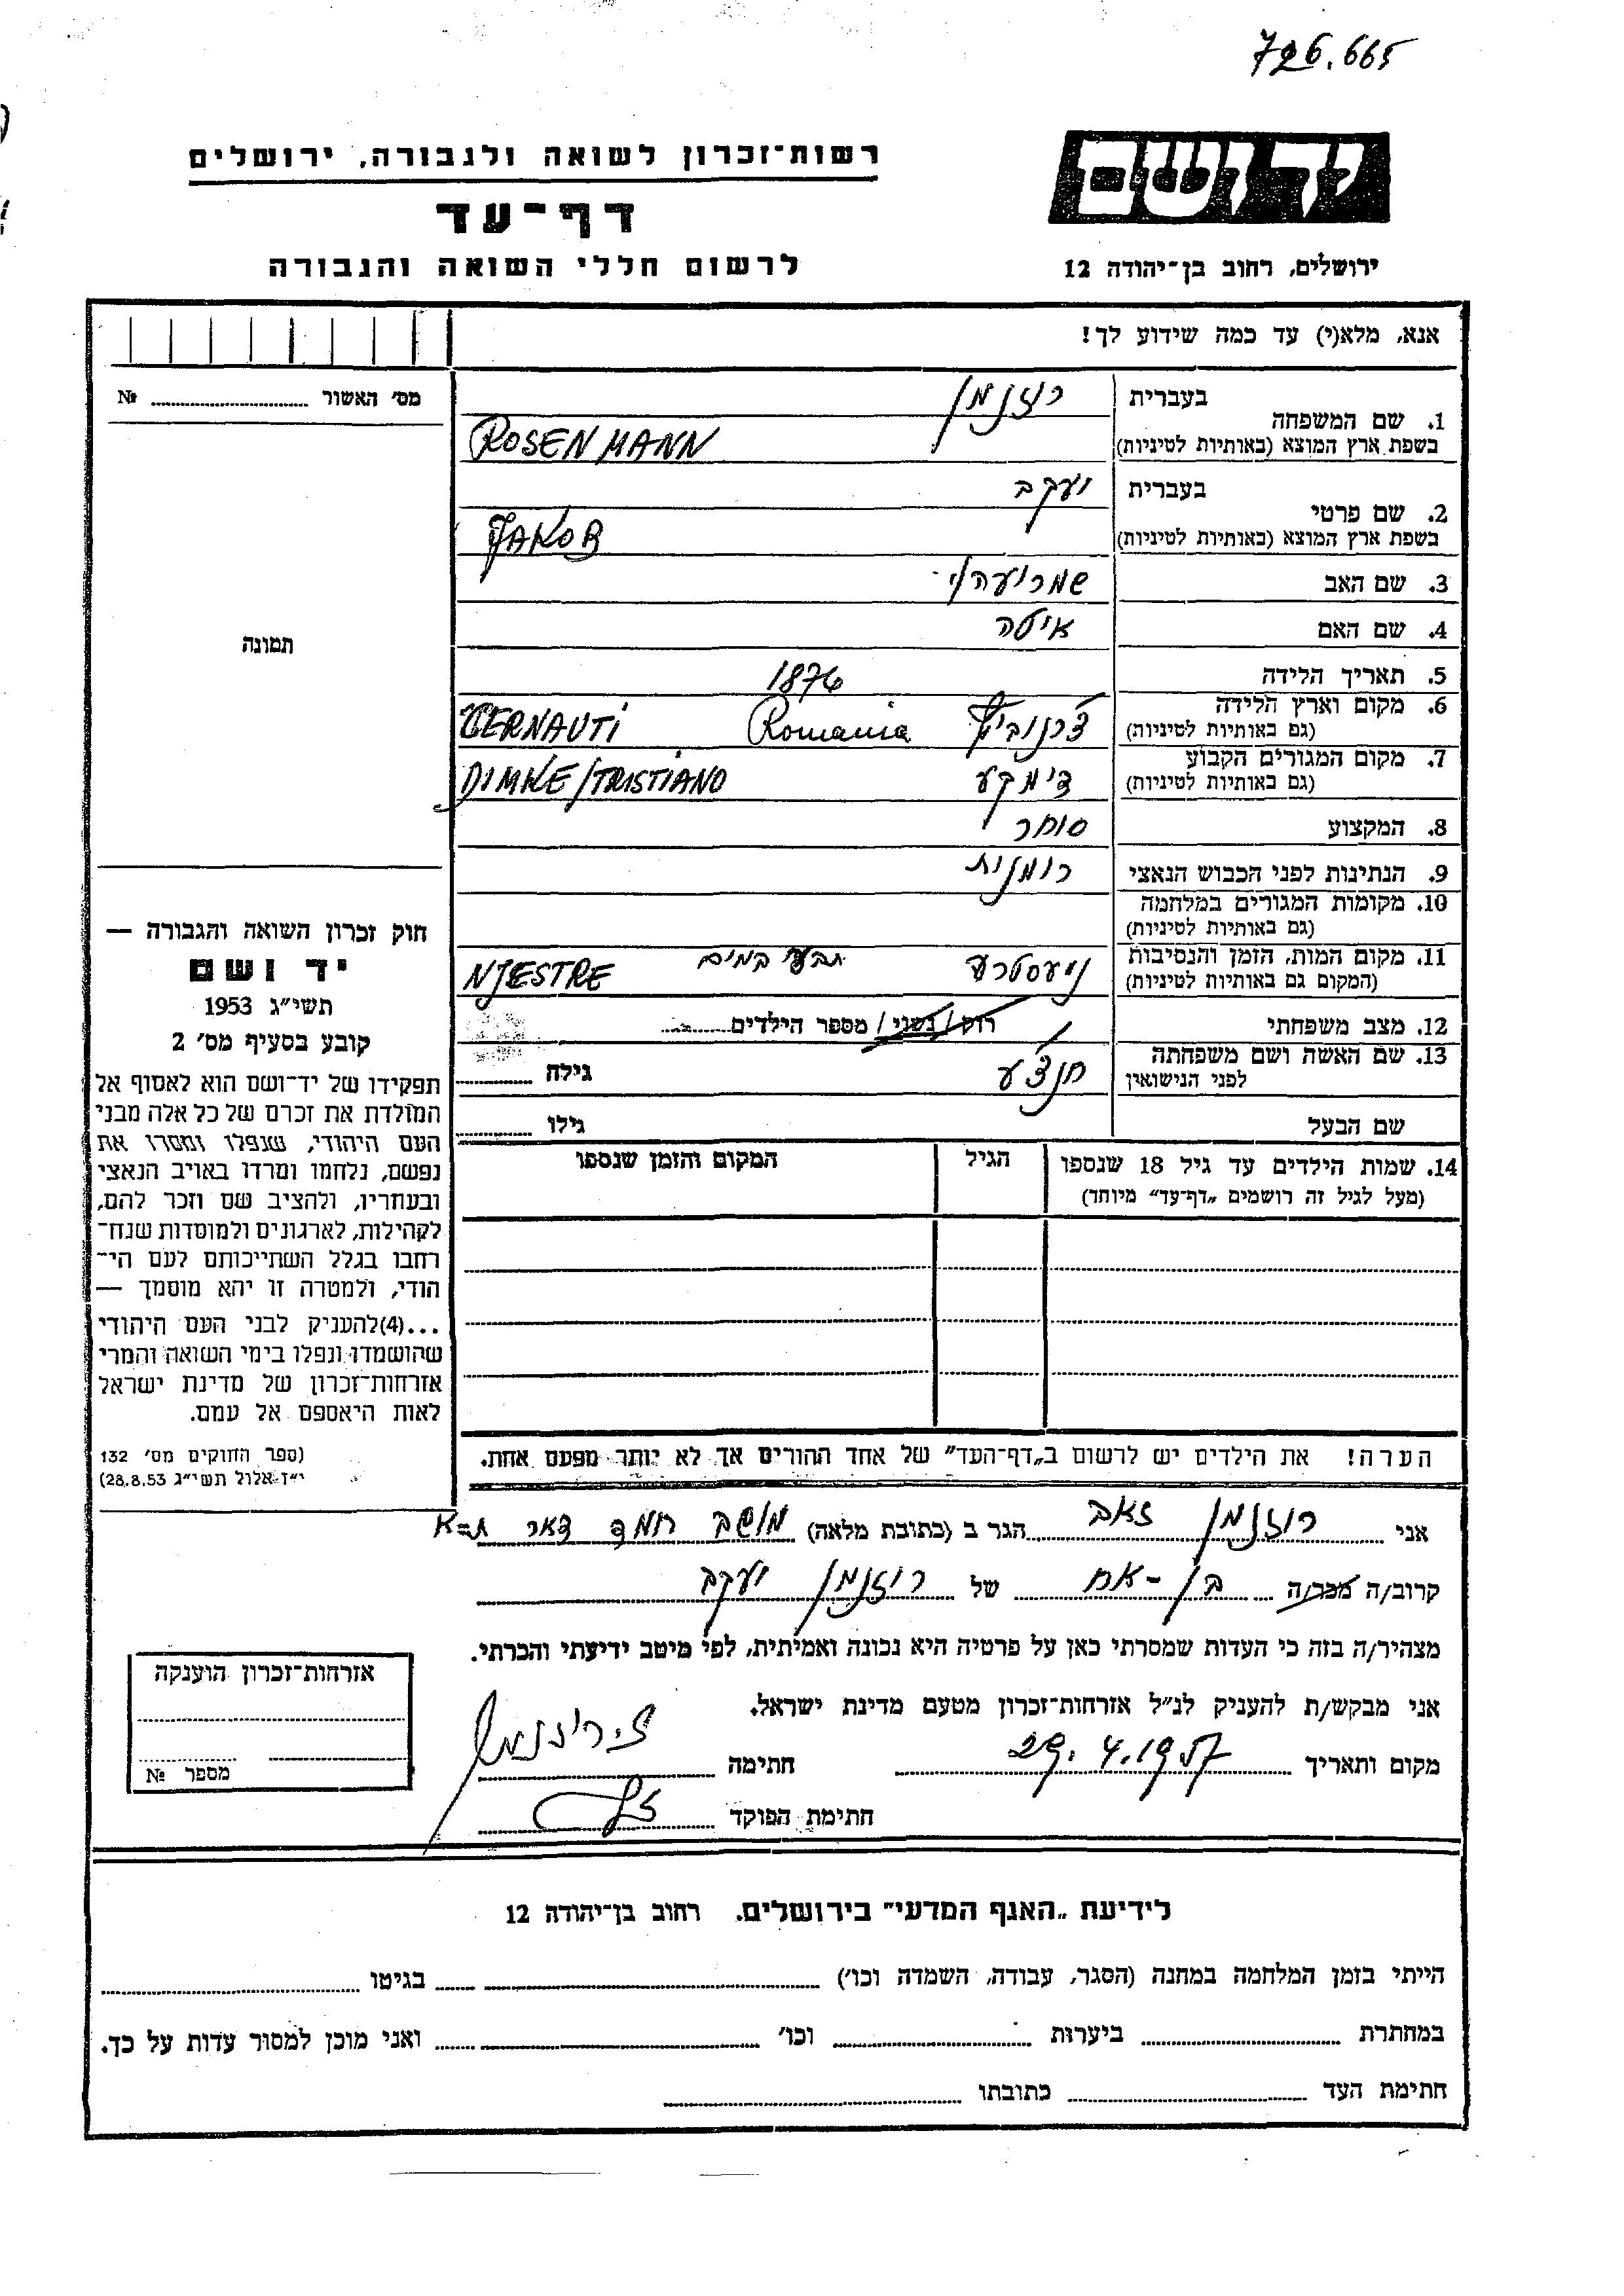 726.665
יד ושם
רשות־זכרון לשואה ולגבורה, ירושלים
דף־עד
לרשום חללי השואה והגבורה
ירושלים, רחוב בן־יהודה 12
אנא, מלא(י) עד כמה שידוע לך!
מס׳ האשור № 
1. שם המשפחה בעברית רוזנמן
בשפת ארץ המוצא (באותיות לטיניות) ROSENMANN
2. שם פרטי בעברית יעקב
בשפת ארץ המוצא (באותיות לטיניות) JAKOB
3. שם האב
4. שם האם איטה
5. תאריך הלידה 1876
6. מקום וארץ הלידה (גם באותיות לטיניות) צ׳רנוביץ Romania CERNAUTI
7. מקום המגורים הקבוע (גם באותיות לטיניות) דימקע DIMKE/TRISTIANO
8. המקצוע סוחר
9. הנתינות לפני הכבוש הנאצי רומנית
10. מקומות המגורים במלחמה (גם באותיות לטיניות)
11. מקום המות, הזמן והנסיבות (המקום גם באותיות לטיניות) ניעסטרע NJESTRE
12. מצב משפחתי רווק/נשוי/ מספר הילדים
13. שם האשה ושם משפחתה לפני הנישואין חנצ׳ע גילה
שם הבעל גילו
14. שמות הילדים עד גיל 18 שנספו
(מעל לגיל זה רושמים „דף־עד” מיוחד)
הגיל
המקום והזמן שנספו
הערה! את הילדים יש לרשום ב„דף־העד” של אחד ההורים אך לא יותר מפעם אחת.
תמונה
חוק זכרון השואה והגבורה —
יד ושם
תשי״ג 1953
קובע בסעיף מס׳ 2
תפקידו של יד־ושם הוא לאסוף אל
המולדת את זכרם של כל אלה מבני
העם היהודי, שנפלו ומסרו את
נפשם, נלחמו ומרדו באויב הנאצי
ובעוזריו, ולהציב שם וזכר להם,
לקהילות, לארגונים ולמוסדות שנח־
רחבו בגלל השתייכותם לעם הי־
הודי, ולמטרה זו יהא מוסמך —
...(4)להעניק לבני העם היהודי
שהושמדו ונפלו בימי השואה והמרי
אזרחות־זכרון של מדינת ישראל
לאות היאספם אל עמם.
(ספר החוקים מס׳ 132
י״ז אלול תשי״ג 28.8.53)
אני רוזנמן זאב הגר ב (כתובת מלאה) מושב
קרוב/ה מכר/ה בן-אח של רוזנמן יעקב
מצהיר/ה בזה כי העדות שמסרתי כאן על פרטיה היא נכונה ואמיתית, לפי מיטב ידיעתי והכרתי.
אני מבקש/ת להעניק לנ״ל אזרחות־זכרון מטעם מדינת ישראל.
מקום ותאריך 29.4.1957 חתימה ז. רוזנמן
חתימת הפוקד
אזרחות־זכרון הוענקה
מספר №
לידיעת „האגף המדעי” בירושלים. רחוב בן־יהודה 12
הייתי בזמן המלחמה במחנה (הסגר, עבודה, השמדה וכו׳) בגיטו
במחתרת ביערות וכו׳ ואני מוכן למסור עדות על כך.
חתימת העד כתובתו